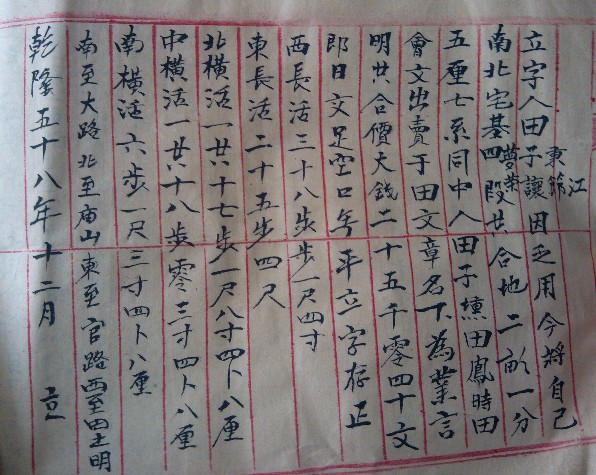 立字人田子讓因乏用今將自己
東節江
南北宅基四段共合地二畝一分
夢榮
五厘七系同中人田子壎田鳳時田
會文出賣于田文章名下為業言
明共合價大錢二十五千零四十文
即日交足空口無平立字存正
西長活三十八步步一尺四寸
東長活二十五步四尺
北橫活一廿十七步一尺八寸四卜八厘
中橫活一廿十八步零三寸四卜八厘
南橫活六步一尺三寸四卜八厘
南至大路北至庙山東至官路西至四土明
乾隆五十八年十二月 立